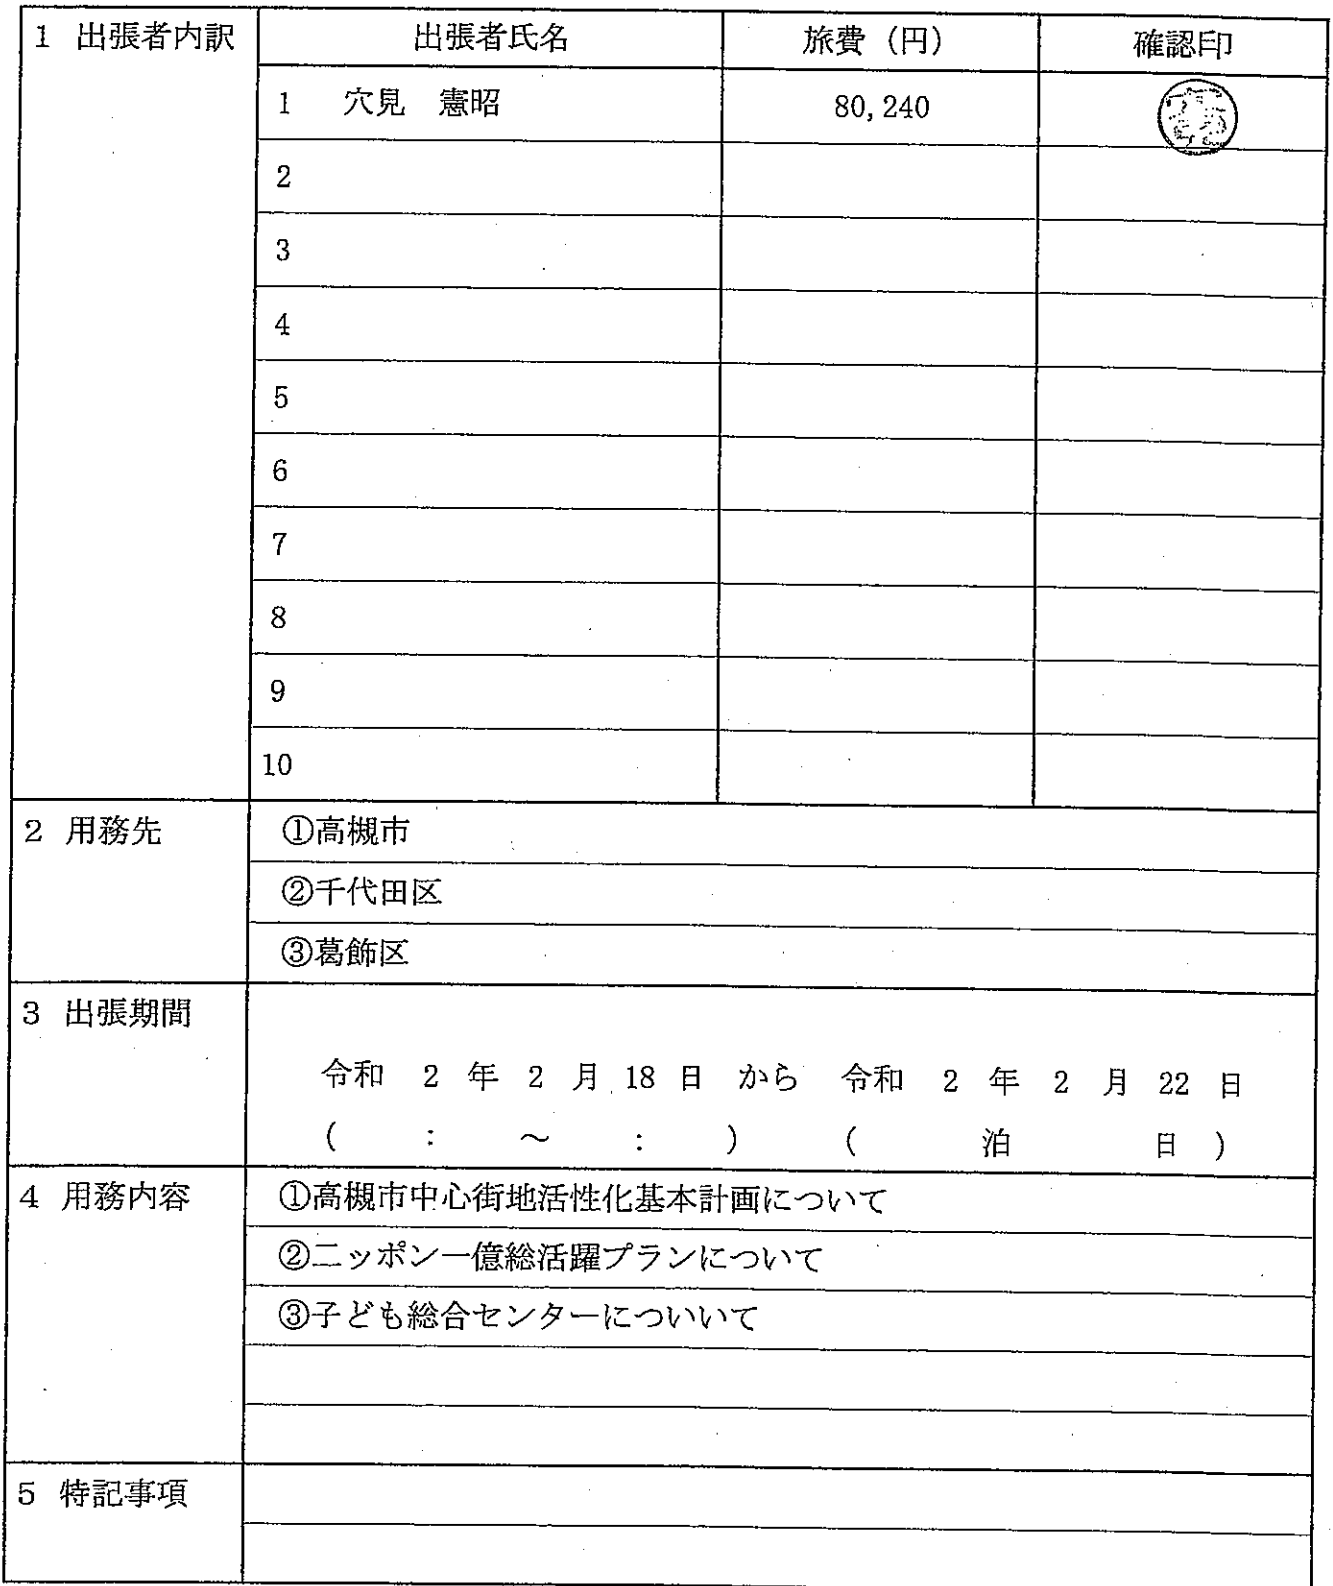 1 出張者内訳 出張者氏名 旅費（円） 確認印
1 穴見 憲昭 80,240
2
3
4
5
6
7
8
9
10
2 用務先 ①高槻市
②千代田区
③葛飾区
3 出張期間
令和 2 年 2 月 18 日 から 令和 2 年 2 月 22 日
( : ～ : ) ( 泊 日 )
4 用務内容 ①高槻市中心街地活性化基本計画について
②ニッポン一億総活躍プランについて
③子ども総合センターについいて
5 特記事項